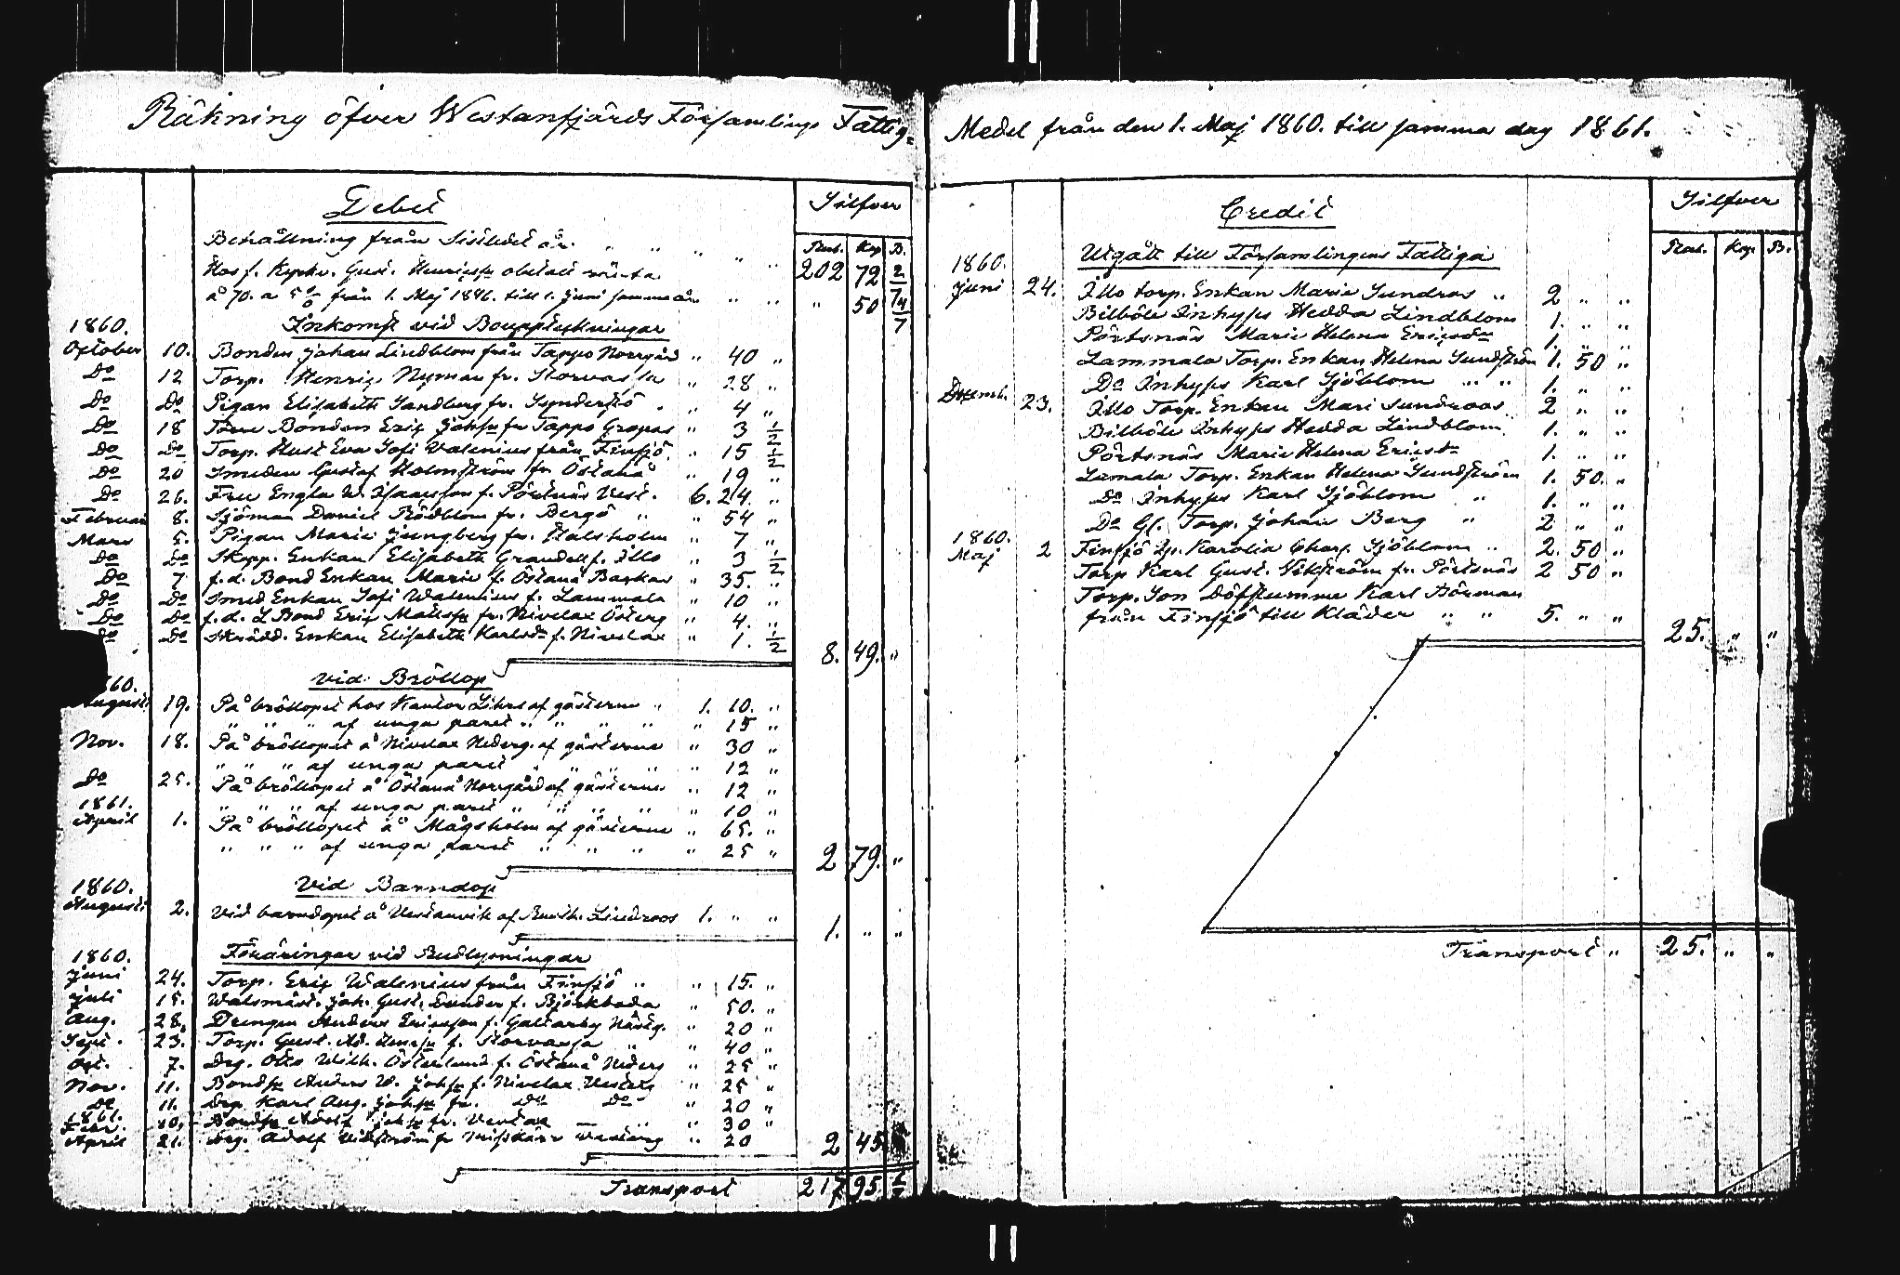 Räkning öfver Westanfjärds Församlings Fattig-
Debet
Silfver
Rub. Kop B.
Behållning från sistledet år " " " " " 202 72 2/7
Hos f. Kyrkv. Gust. obetalt ränta
å 70. a 5 % från 1. Maj till 1. Juni samma år " " " 50 4/7
Inkomst vid Bouppteckningar
1860.
October 10. Bonden Johan Lindblom från Tappo Norrgård " 40 "
Do 12 Torp. Henric Nyman fr. Storvasta " 28 "
Do Do Pigan Elisabeth Sandberg fr. " 4 "
Do 18 Bonden Eric Johss fr Tappo Gropas " 3 1/2
Do Do Torp. Hust Eva Sofi Walenius från Finsjö " 15 1/2
Do 20 Smeden Gustaf Holmström fr. Östanå " 19 "
Do 26. Fru Engla W. f. Pörtnäs Vest. 6. 24 "
Februari 8. Sjöman Daniel Rödblom fr. Bergö " " 54 "
Mars 5. Pigan Maria Ljungberg fr. Kålsholm " 7 "
Do Do Skepp. Enkan Elisabeth Grandell f. Illo " 3 1/2
Do 7 f.d. Bond Enkan Maria f. Östanå Backas " 35. "
Do Do Smed Enkan Sofi Walenius f. Lammala " 10 "
Do Do f.d. L Bond Eric Matss fr. Nivelax Österg " 4. "
Do Do Skrädd. Enkan Elisabeth Karlsdr f. Nivelax " 1. 1/2
8. 49. "
vid Bröllop
1860.
Augusti 19. På bröllopet hos Kantor Lihr af gästerne " 1. 10. "
" " " af unga paret " " " " " 15 "
Nov. 18. På bröllopet å Nivelax Nederg. af gästerne " 30 "
" " " af unga paret " " " " " 12 "
Do 25. På bröllopet å Östanå Norrgård af gästerne " 12 "
1861. " " " af unga paret " " " " " 10 "
April 1. På bröllopet å Mågsholm af gästerne " 65. "
" " " af unga paret " " " " 25 "
2 79. "
Vid Barndop
1860.
Augusti 2. Vid barndopet å Vestanvik af Lindroos 1. " "
1. " "
Föräringar vid
1860.
Juni 24. Torp. Eric Walenius från Finsjö " " 15. "
Juli 15. Joh. Gust. Sunder f. Björkboda " 50. "
Aug. 28. Drengen Anders Ericsson f. Galtarby Näseg. " 20 "
Sept. 23. Torp. Gust. Ad. f. Storvasta " " 40 "
Oct. 7. Drg. Otto Wilh. Österlund f. Östanå Nederg " 25 "
Nov. 11. Bondss Anders W. Johss f. Nivelax Vesterg " 25 "
Do 11. Drg Karl Aug. Johss fr. Do Do " 20 "
1861.
Febr. 10. Bondss Adolf Johss fr. — " " 30 "
April 21. Drg. Adolf Wikström fr " 20
2 45
Transport 217 95

Medel från den 1. Maj 1860. till samma dag 1861.
Credit
Silfver
Rub. Kop. B.
Utgått till Församlingens Fattiga
1860.
Juni 24. Illo torp. Enkan Maria Sundroos " 2 " "
Bilböle Inhyss Hedda Lindblom 1. " "
Pörtsnäs Maria Helena Ericsdr 1. " "
Lammala Torp. Enkan Helena Sundström 1. 50 "
Do Inhyss Karl Sjöblom " " 1. " "
Decemb. 23. Illo Torp. Enkan Mari Sundroos 2 " "
Bilböle Inhyss Hedda Lindblom. 1. " "
Pörtsnäs Maria Helena Ericsdr 1. " "
Lamala Torp. Enkan Helena Sundström 1. 50. "
Do Inhyss Karl Sjöblom " 1. " "
Do Gl. Torp. Johan Berg " 2 " "
1860.
Maj 2 Finsjö Karolia Sjöblom " 2. 50 "
Torp Karl Gust. Wikström fr. Pörtsnäs 2 50 "
Torp. Son Döfstumme Karl Böxman
från Finsjö till Kläder " " 5. " "
25. " "
Transport " 25. " "